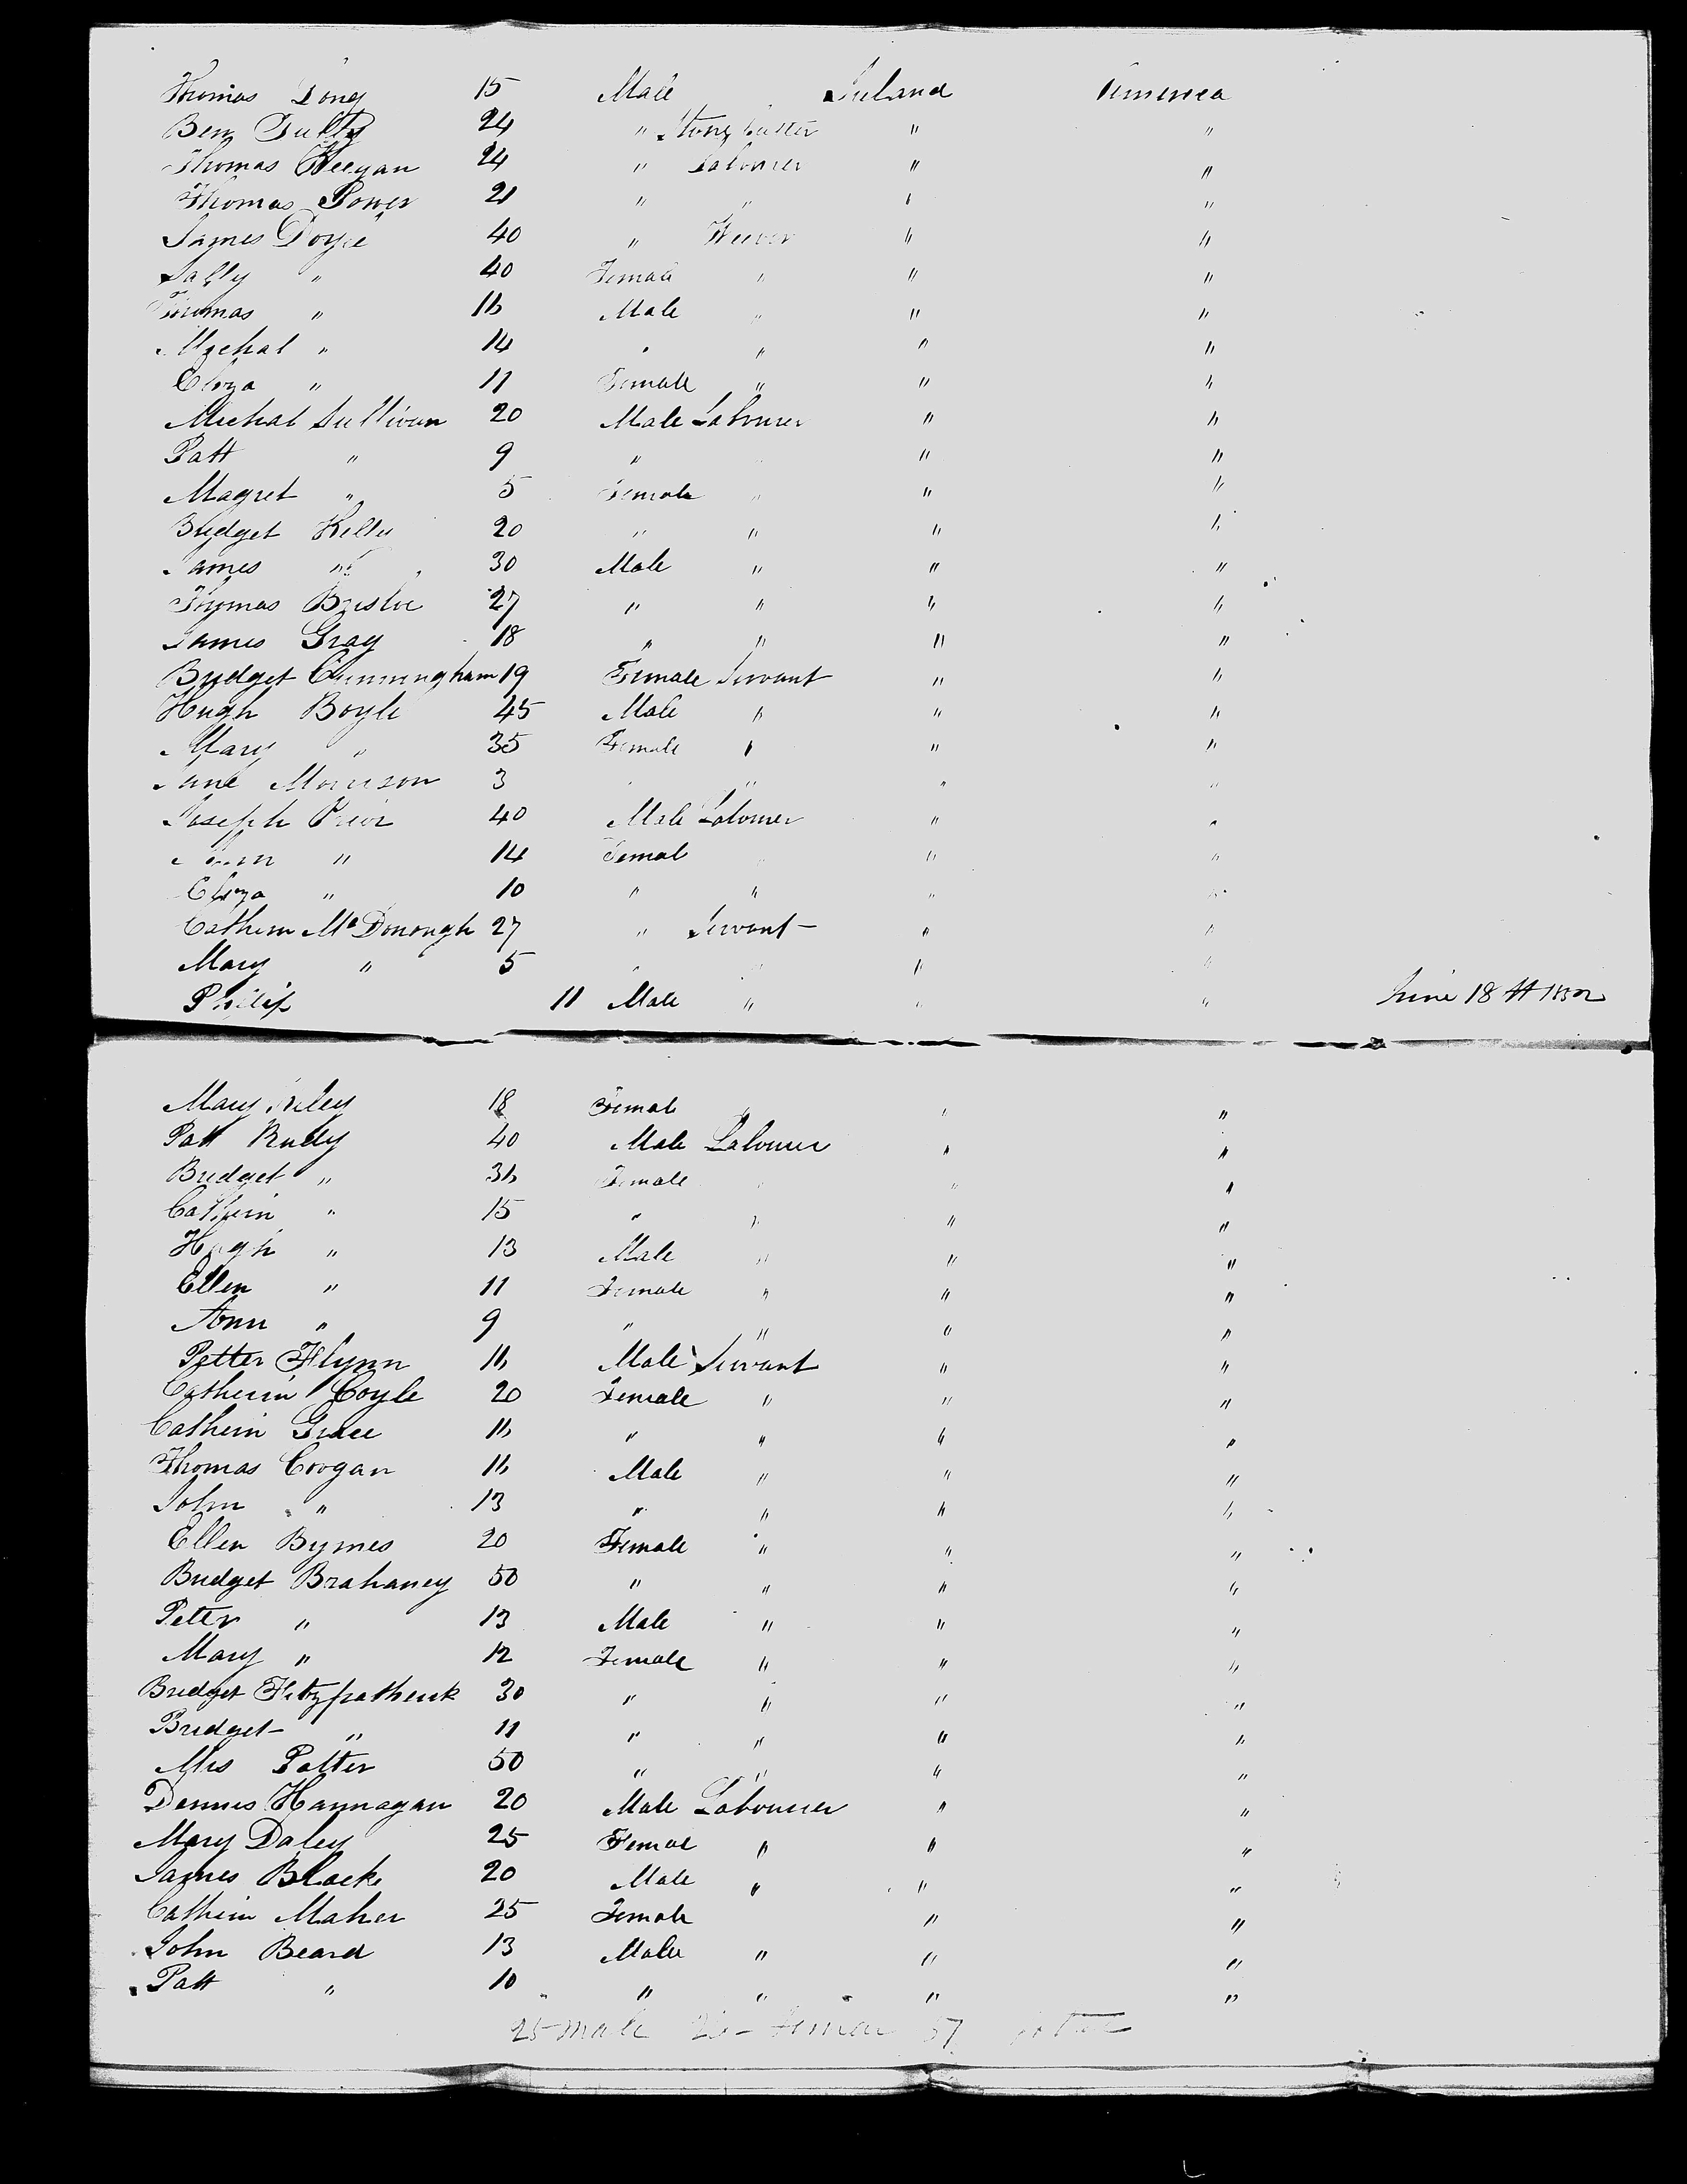 Thomas Long 15 Male Ireland America
Ben Tully 24 " Stone Cutter " "
Thomas Keegan 24 " Labourer " "
Thomas Power 21 " " " "
James Doyle 40 " Weever " "
Sally " 40 Female " " "
Thomas " 16 Male " " "
Michal " 14 " " " "
Eliza " 11 Female " " "
Michal Sullivan 20 Male Labourer " "
Patt " 9 " " "
Magret " 5 Female " " "
Bridget Kelly 20 " " " "
James " 30 Male " " "
Thomas Breslie 27 " " " "
James Gray 18 " " " "
Bridget Cunningham 19 Female Servant " "
Hugh Boyle 45 Male " " "
Mary " 35 Female " " "
Jane Morrison 3 " " "
Joseph Prior 40 Male Labourer " "
" 14 Femal " "
Eliza " 10 " " " "
Cathern Mc Donough 27 " Servant " "
Mary " 5 " " "
Philip 11 Male " " " June 18th 1852
Mary 18 Femal " "
Patt Rudy 40 Male Labourer " "
Bridget " 36 Female " " "
Cathrin " 15 " " " "
Hugh " 13 Male " " "
Ellen " 11 Female " " "
Ann " 9 " " " "
Petter Flynn 16 Male Servant " "
Catherin Coyle 20 Female " " "
Cathrin Grace 16 " " " "
Thomas Coogan 16 Male " " "
John " 13 " " " "
Ellen Byrnes 20 Female " " "
Bridget Brahaney 50 " " " "
Peter " 13 Male " " "
Mary " 12 Female " " "
Bridget Fitzpatherick 30 " " " "
Bridget " 11 " " " "
Mrs Potter 50 " " " "
Dennis Hannagan 20 Male Labourer " "
Mary Daley 25 Femal " " "
James Black 20 Male " " "
Cathrin Maher 25 Female " "
John Beard 13 Male " " "
Patt " 10 " " " "
25 male